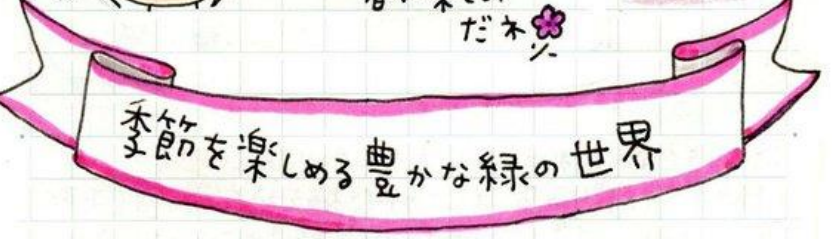 だネ
季節を楽しめる豊かな緑の世界